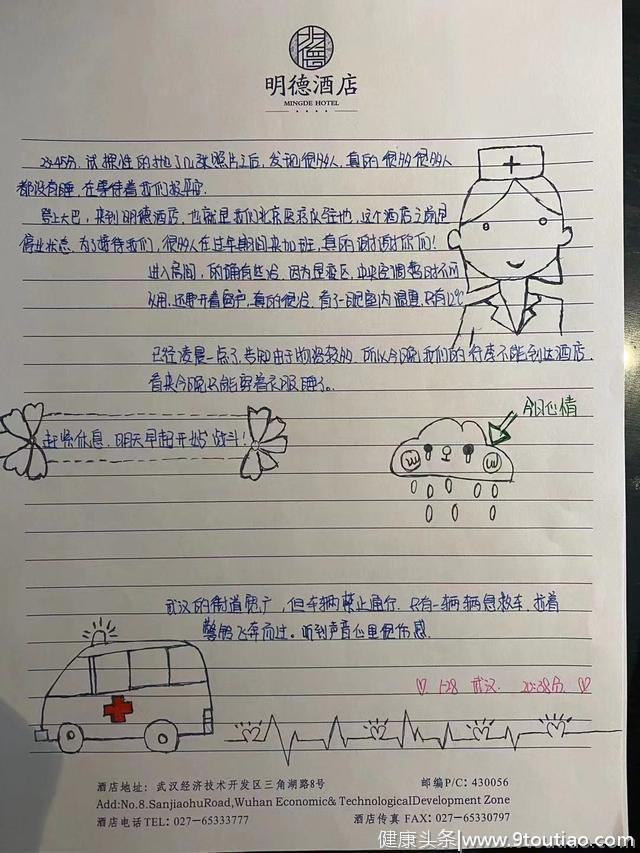 明德酒店
MINGDE HOTEL
23:45分.试探性的拍了几张照片之后,发现很多人,真的很多很多人
都没有睡,在等待着我们报平安.
登上大巴,来到明德酒店,也就是我们北京医疗队驻地,这个酒店之前是
停业状态.为了接待我们,很多人在过年期间来加班,真的谢谢你们!
进入房间,的确有些冷,因为是疫区,中央空调暂时不可
以用,还要开着窗户,真的很冷,看了一眼室内温度,只有12℃
已经凌晨一点了,告知由于物资较多,所以今晚我们的行李不能到达酒店,
看来今晚只能穿着衣服睡了..
今日心情
赶紧休息,明天早起开始战斗!
武汉的街道宽广,但车辆禁止通行.只有一辆辆急救车,拉着
警笛飞奔而过。听到声音心里很伤感.
♡ 1-28 武汉. 20:38分. ♡
酒店地址: 武汉经济技术开发区三角湖路8号 邮编P/C: 430056
Add:No.8.SanjiaohuRoad,Wuhan Economic& TechnologicalDevelopment Zone
酒店电话TEL: 027-65333777 酒店传真 FAX: 027-65330797
健康头条|www.9toutiao.com